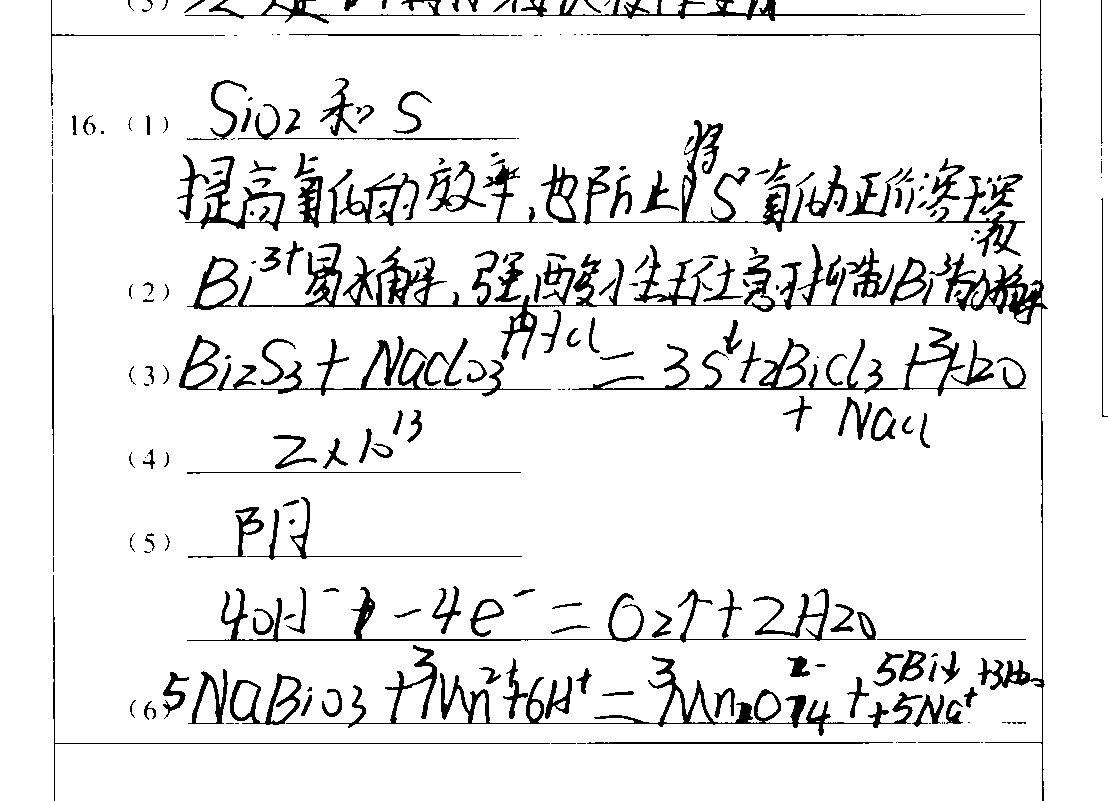 (3)
16.(1) SiO2 和 S
提高氧化的效率,也防止将S氧化为正价溶于溶液
(2) Bi³⁺易水解,强酸性环境抑制Bi³⁺的水解
(3) Bi2S3 + NaClO3 + HCl = 3S↓+2BiCl3 +3H2O
+ NaCl
(4) 2×10¹³
(5) 阴
4OH⁻ - 4e⁻ = O2↑+2H2O
(6) 5NaBiO3 +3Mn²⁺+6H⁺ = 3MnO4²⁻ + 5Bi↓ +3H2O
+5Na⁺